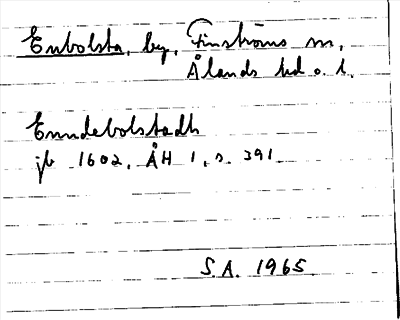 Enbolsta, by, Finströms sn,
Ålands hd o. l.
Enndebolstadh
jb 1602, ÅH 1, s. 391
S.A. 1965